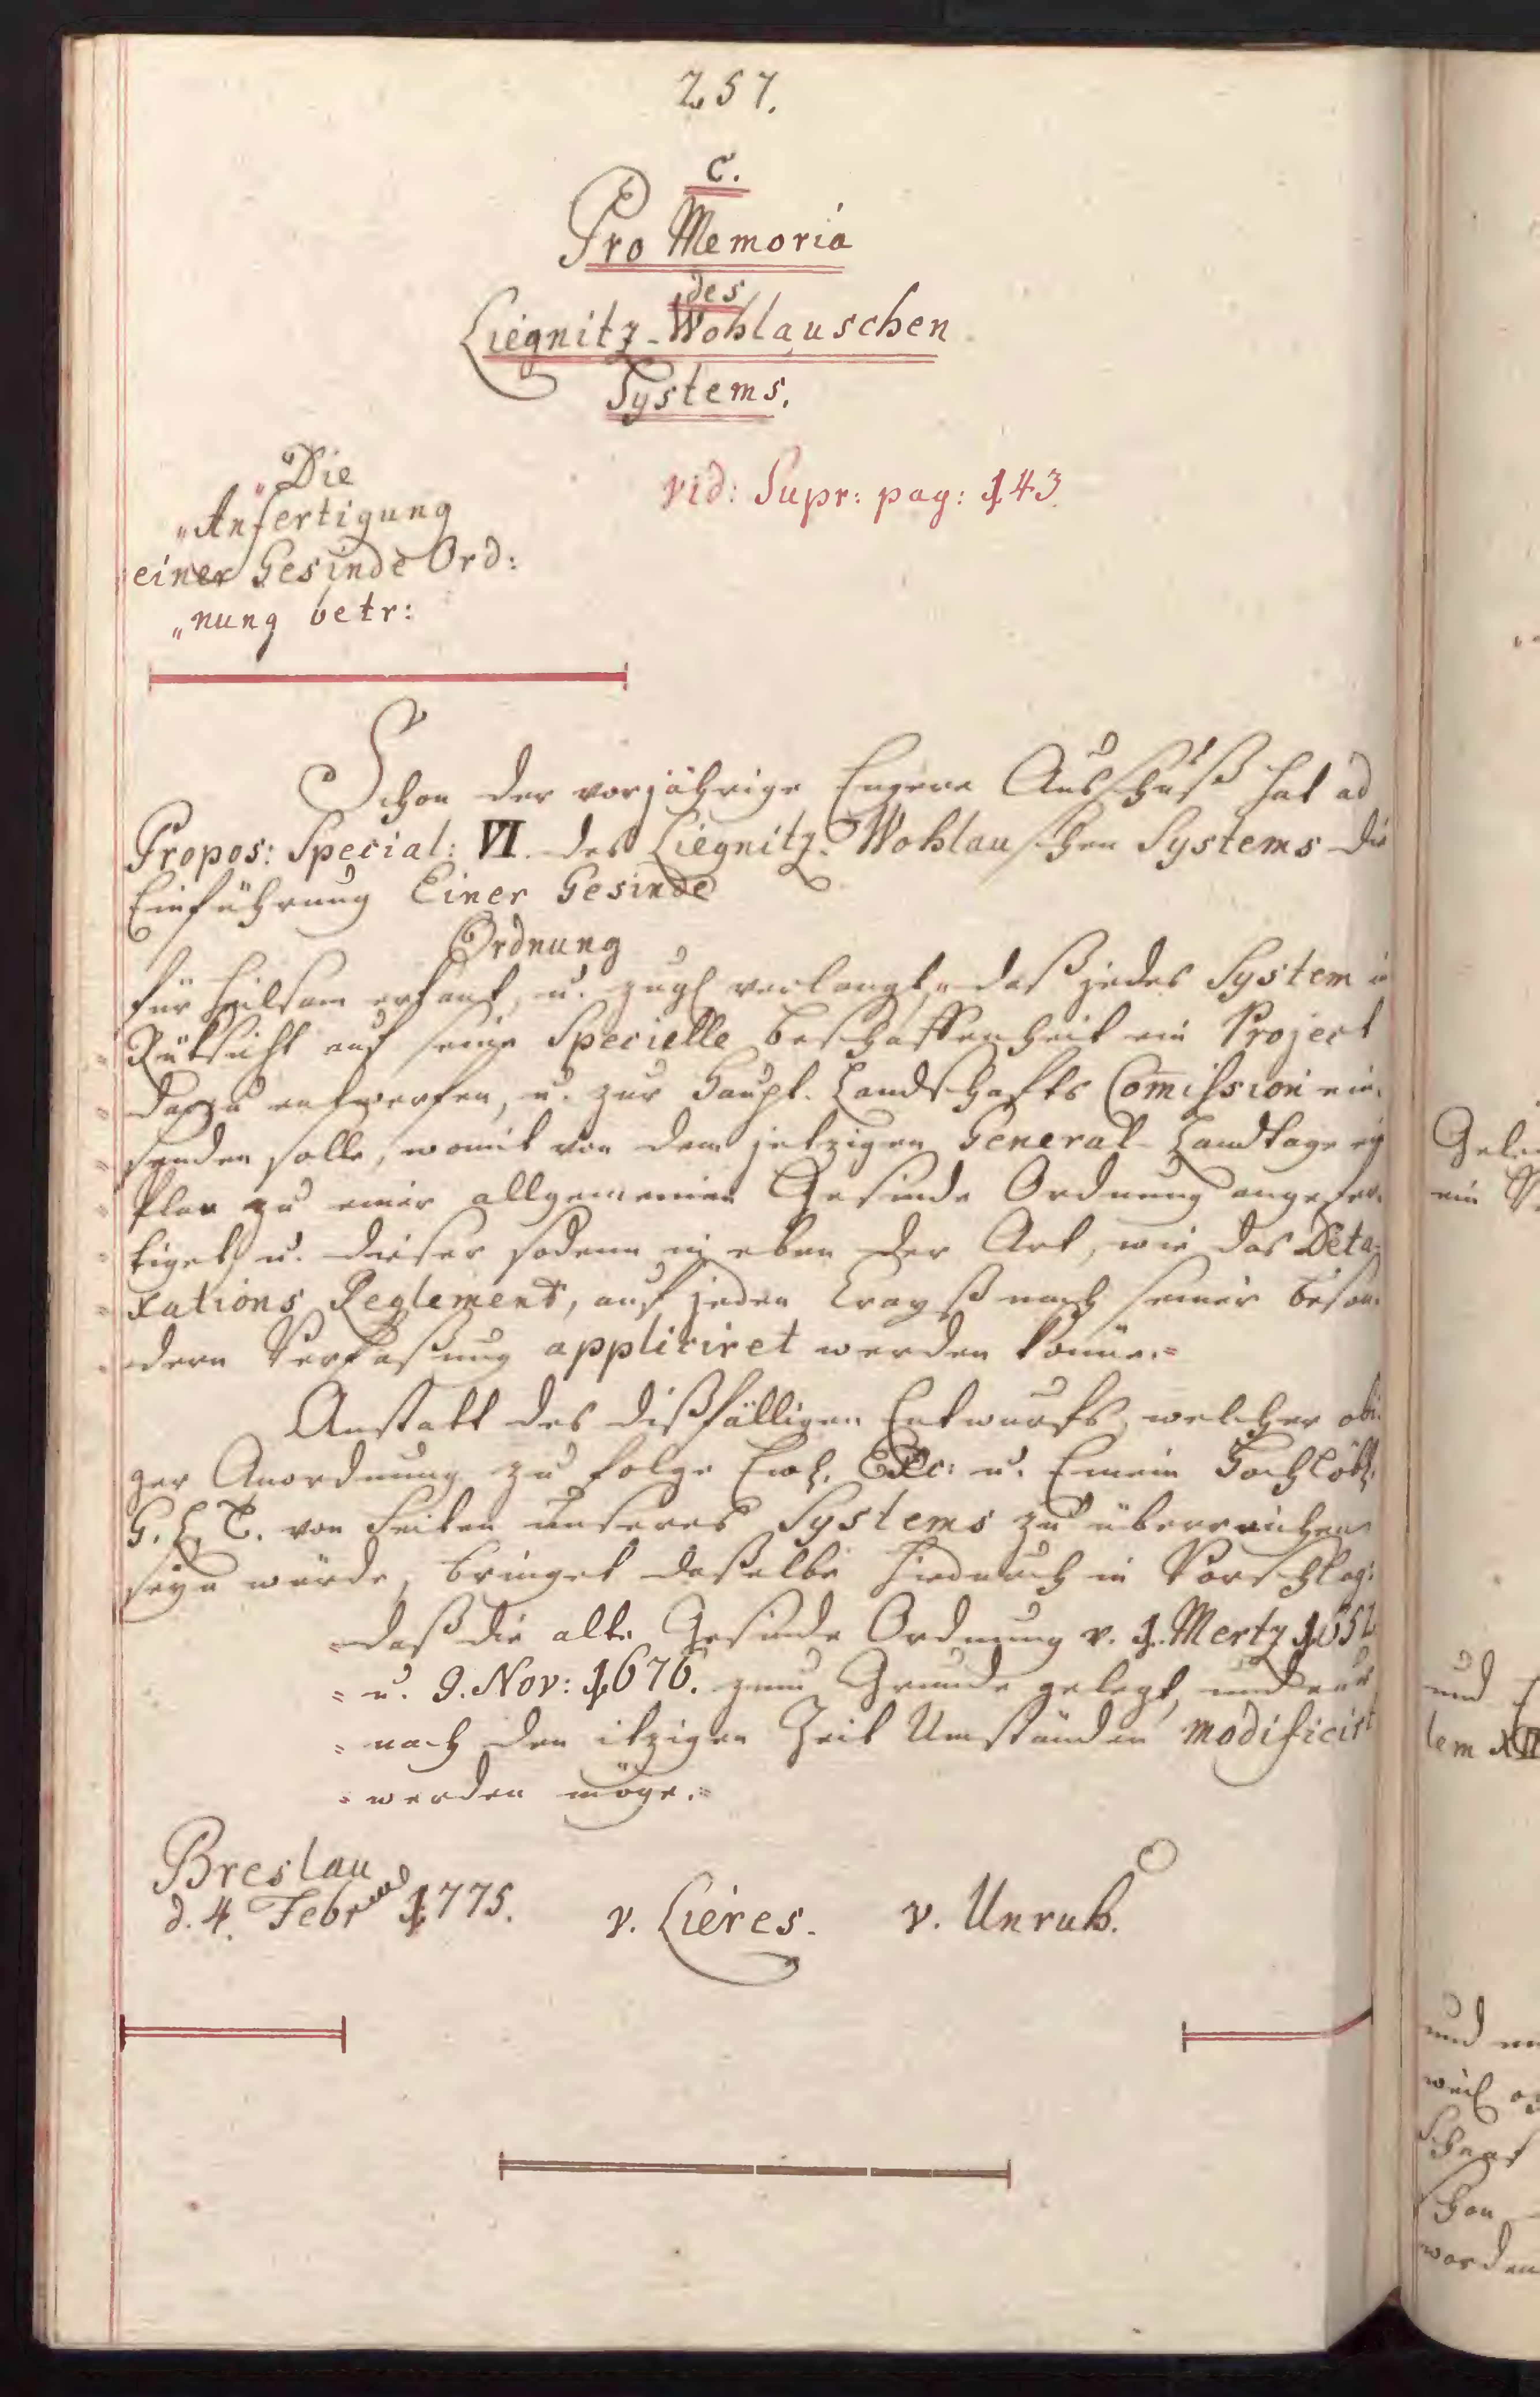 257.
C.
Pro Memoria
des
Liegnitz-Wohlauschen
Systems.
"Die
"Anfertigung
einer Gesinde Ord:
"nung betr:
vid: Supr: pag: 143.
Schon der vorjährige Engere Ausschuß hat ad
Propos: Special: VI. des Liegnitz-Wohlauschen Systems die
Einführung Einer Gesinde
Ordnung
für heilsam erkant, u. zugl verlangt, "daß jedes System in
Rüksicht auf seine Specielle Beschaffenheit ein Project
dazu entwerfen, u. zur Haupt-Landschafts Comission ein-
senden solle, womit von dem jetzigen General-Landtage ein
Plan zu einer allgemeinen Gesinde Ordnung angefer-
tiget, u. dieser sodann in eben der Art, wie das Deta-
xations Reglement, auf jeden Crayß nach seiner beson-
dern Verfaßung appliciret werden könne."
Anstatt des dißfälligen Entwurfs, welcher obi-
ger Anordnung zu folge Ewl. Exc: u. Einem Hochlöbl.
G. L. C. von Seiten unseres Systems zu überreichen
seyn würde, bringet daßelbe hiedurch in Vorschlag:
"daß die alte Gesinde Ordnung v. 1. Mertz 1652
" u. 9. Nov: 1676. zum Grunde gelegt, und nur
" nach den itzigen Zeit Umständen modificirt
" werden möge."
Breslau
d. 4. Febr 1775.
v. Lieres. v. Unruh.